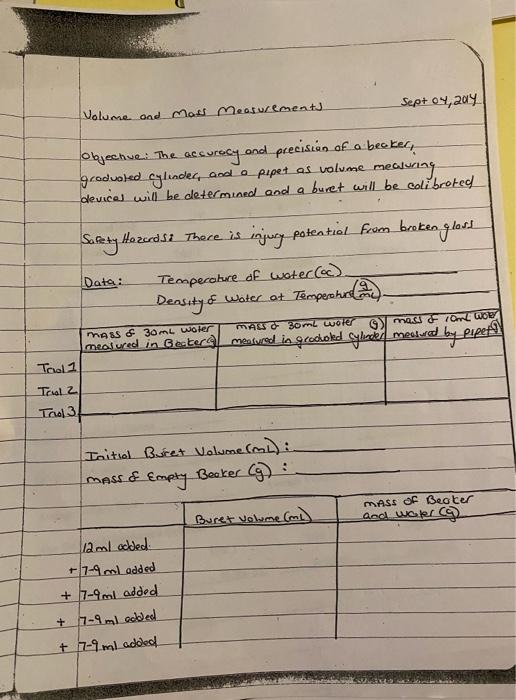 Sept 04, 2014
Volume and Mass Measurements
Objective: The accuracy and precision of a beaker,
graduated cylinder, and a pipet as volume measuring
devices will be determined and a buret will be calibrated
Safety Hazards: There is injury potential from broken glass
Data: Temperature of water (°C)
Density of water at Temperature (g/mL)
mass of 30mL water measured in Beaker (g)
mass of 30mL water (g) measured in graduated cylinder
mass of 10mL water measured by pipet (g)
Trial 1
Trial 2
Trial 3
Initial Buret Volume (mL):
mass of Empty Beaker (g):
Buret volume (mL)
mass of Beaker and water (g)
12ml added
+ 7-9 ml added
+ 7-9ml added
+ 7-9 ml added
+ 7-9 ml added